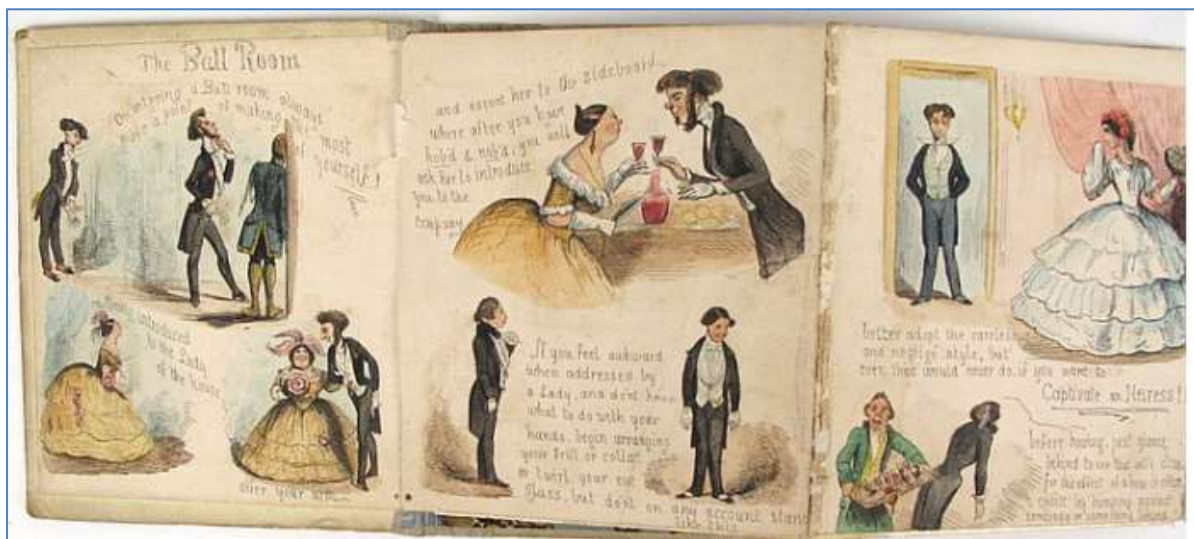 The Ball Room
On entering a Ball room always
make a point of making the most
of yourself!
introduced
to the Lady
of the house
offer your arm
and escort her to the sideboard
where after you have
hob'd & nob'd, you will
ask her to introduce
you to the
company
If you feel awkward
when addressed by
a Lady, and don't know
what to do with your
hands, begin arranging
your frill or collar
or twirl your eye
glass, but don't on any account stand
like this
better adopt the careless
and neglige style, but
that would never do, if you want to
"Captivate an Heiress!"
before bowing, just glance
behind to see that all's clear
for the effect of a bow is often
spoilt by bumping against
somebody or something behind